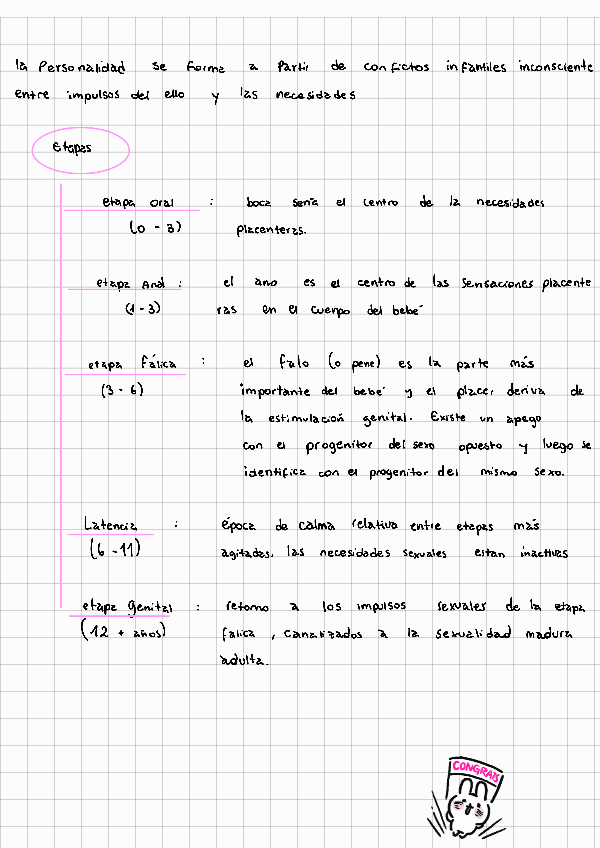 la Personalidad se forma a partir de conflictos infantiles inconsciente
entre impulsos del ello y las necesidades
Etapas
etapa oral : boca sería el centro de la necesidades
(0 - 3) placenteras.
etapa Anal : el ano es el centro de las sensaciones placente
(1 - 3) ras en el cuerpo del bebé
etapa Fálica : el falo (o pene) es la parte más
(3 - 6) importante del bebé y el placer deriva de
la estimulación genital. Existe un apego
con el progenitor del sexo opuesto y luego se
identifica con el progenitor del mismo sexo.
Latencia : época de calma relativa entre etapas más
(6 - 11) agitadas. las necesidades sexuales estan inactivas
etapa genital : retorno a los impulsos sexuales de la etapa
(12 + años) falica, canalizados a la sexualidad madura
adulta.
CONGRATS